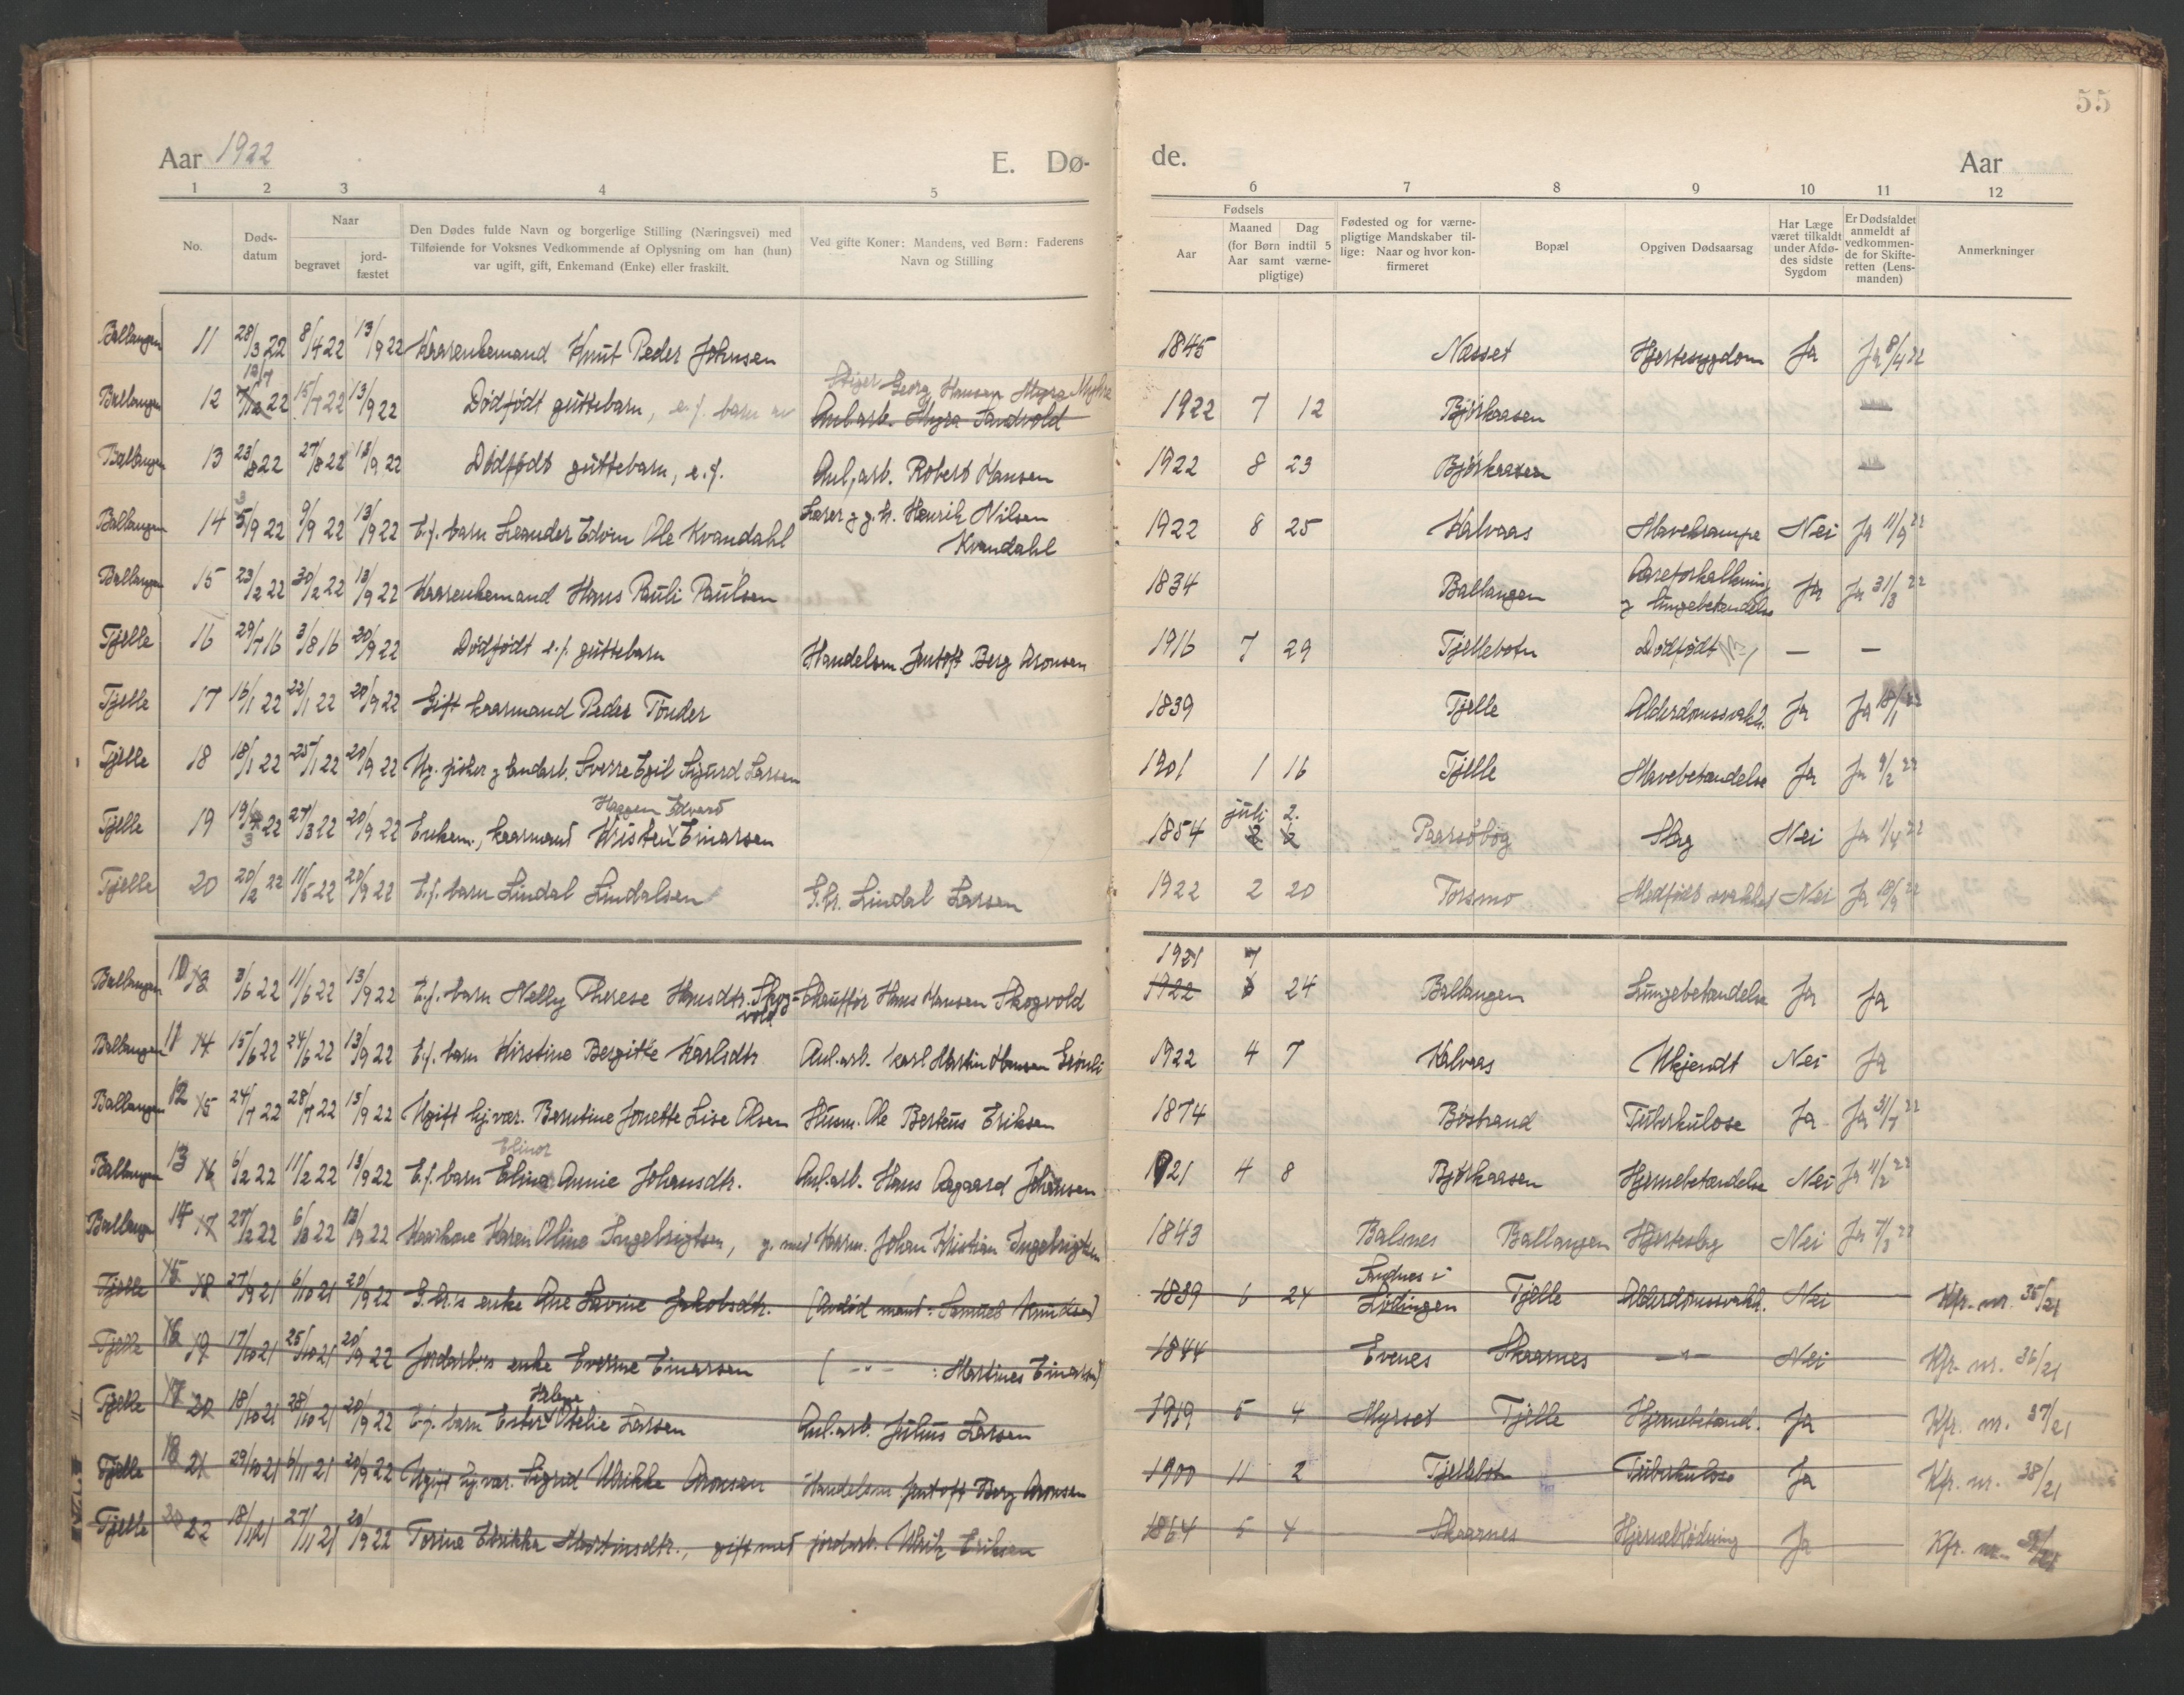 55
Aar 1922 E. Dø- de. Aar
1 2 3 4 5 6 7 8 9 10 11 12
No.
Døds-
datum
Naar
begravet
jord-
fæstet
Den Dødes fulde Navn og borgerlige Stilling (Næringsvei) med
Tilføiende for Voksnes Vedkommende af Oplysning om han (hun)
var ugift, gift, Enkemand (Enke) eller fraskilt.
Ved gifte Koner: Mandens, ved Børn: Faderens
Navn og Stilling
Fødsels
Aar
Maaned Dag
(for Børn indtil 5
Aar samt værne-
pligtige)
Fødested og for værne-
pligtige Mandskaber til-
lige: Naar og hvor kon-
firmeret
Bopæl
Opgiven Dødsaarsag
Har Læge
været tilkaldt
under Afdø-
des sidste
Sygdom
Er Dødsfaldet
anmeldt af
vedkommen-
de for Skifte-
retten (Lens-
manden)
Anmerkninger
Ballangen 11 28/3 22 8/4 22 13/9 22 Kaarenkemand Knut Peder Johnsen 1845 Næsset Hjertesygdom Ja Ja 8/4 22
12/7 Stiger Georg Hansen Myra Myhre
Ballangen 12 22 15/7 22 13/9 22 Dødfødt guttebarn, e.f. barn av Anl.arb. Myra Sandvold 1922 7 12 Bjørkaasen
Ballangen 13 23/8 22 27/8 22 13/9 22 Dødfødt guttebarn, e.f. Anl.arb. Robert Hansen 1922 8 23 Bjørkaasen
Ballangen 14 5/9 22 9/9 22 13/9 22 E.f. barn Leander Edvin Ole Kvandahl Lærer g g.br. Henrik Nilsen 1922 8 25 Kalvaas Mavekrampe Nei Ja 11/9 22
Kvandahl
Ballangen 15 23/2 22 30/2 22 13/9 22 Kaarenkemand Hans Pauli Paulsen 1834 Ballangen Aareforkalkning Ja Ja 31/3 22
g lungebetændelse
Tjelle 16 29/7 16 3/8 16 20/9 22 Dødfødt e.f. guttebarn Handelsm. Jentoft Berg Aronsen 1916 7 29 Tjellebotn Dødfødt — —
Tjelle 17 16/1 22 22/1 22 20/9 22 Gift kaarmand Peder Tønder 1839 Tjelle Alderdomssvakh. Ja Ja 18/1 22
Tjelle 18 18/1 22 25/1 22 20/9 22 Ug. fisker g landarb. Sverre Egil Sigurd Larsen 1901 1 16 Tjelle Mavebetændelse Ja Ja 9/2 22
Haagen Edvard juli 2.
Tjelle 19 19/3 22 27/3 22 20/9 22 Enkem., kaarmand Kristen Einarsen 1854 Slag Nei Ja 1/4 22
Tjelle 20 20/2 22 11/5 22 20/9 22 E.f. barn Lindal Lindalsen G.br. Lindal Larsen 1922 2 20 Torsmo Medfødt svakhet Nei Ja 18/9 22
1921 7
Ballangen 10 13 3/6 22 11/6 22 13/9 22 E.f. barn Nelly Therese Hansdtr. Skog- Chauffør Hans Hansen Skogvold 1922 6 24 Ballangen Lungebetændelse Ja Ja
vold
Ballangen 11 14 15/6 22 24/6 22 13/9 22 E.f. barn Kirstine Bergitte Karlsdtr. Anl.arb. Karl Martin Hansen Grønli 1922 4 7 Kalvaas Ukjendt Nei Ja
Ballangen 12 15 24/7 22 28/7 22 13/9 22 Ugift hj.vær. Berntine Jonette Lise Olsen Husm. Ole Berteus Eriksen 1874 Bøstrand Tuberkulose Ja Ja 31/7 22
Elinor
Ballangen 13 16 6/2 22 11/2 22 13/9 22 E.f. barn Elina Annie Johansdtr. Anl.arb. Hans Aagaard Johansen 1921 4 8 Bjørkaasen Hjernebetændelse Nei Ja 11/2 22
Ballangen 14 17 27/2 22 6/3 22 13/9 22 Kaarkone Karen Oline Ingebrigtsen, g. med Kaarm. Johan Kristian Ingebrigtsen 1843 Balsnes Ballangen Hjerteslag Nei Ja 7/3 22
Sandnes i
Tjelle 15 18 27/9 21 6/10 21 20/9 22 G.br.s enke Ane Lavrine Jakobsdtr. (Avdød mand: Samuel Knudsen) 1839 6 24 Lødingen Tjelle Alderdomssvakh. Nei Kfr. nr. 35/21
Tjelle 16 19 17/10 21 25/10 21 20/9 22 Jordarb.s enke Everine Einarsen ( -"- : Martines Einarsen) 1844 Evenes Skaarnes -"- Nei Kfr. nr. 36/21
Helene
Tjelle 17 20 18/10 21 28/10 21 20/9 22 E.f. barn Ester Otelie Larsen Anl.arb. Julius Larsen 1919 5 4 Myrset Tjelle Hjernebetænd. Ja Kfr. nr. 37/21
Tjelle 18 21 29/10 21 6/11 21 20/9 22 Ugift hj.vær. Sigrid Ulrikke Aronsen Handelsm. Jentoft Berg Aronsen 1900 11 2 Tjellebotn Tuberkulose Ja Kfr. nr. 38/21
Tjelle 22 18/11 21 27/11 21 20/9 22 Torine Erikka Martinsdtr., gift med jordarb. Ulrik Eriksen 1864 5 4 Skaarnes Hjerneblødning Ja Kfr. nr.